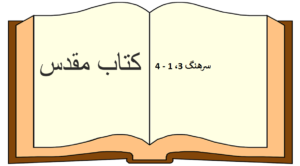 کتاب مقدس
سرهنگ 3، 1 - 4